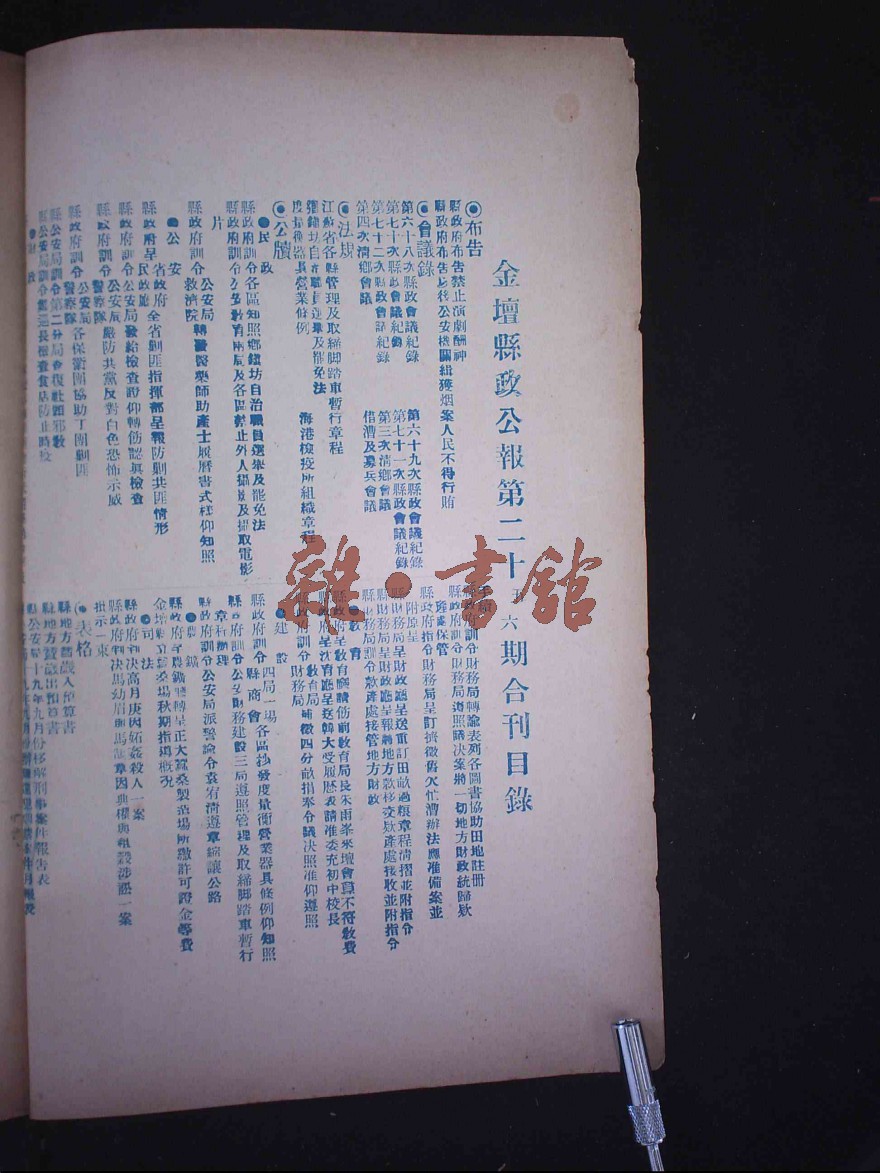 金壇縣政公報第二十五六期合刊目錄
◉布告
縣政府布告禁止演劇酬神
縣政府布告為移公安機關緝獲烟案人民不得行賄
◉會議錄
第六十八次縣政會議紀錄
第六十九次縣政會議紀錄
第七十次縣政會議紀錄
第七十一次縣政會議紀錄
第七十二次縣政會議紀錄
第三次清鄉會議
第四次清鄉會議
借漕及募兵會議
◉法規
江蘇省各縣管理及取締脚踏車暫行章程
鄉鎮坊自治職員選舉及罷免法
度量衡器具營業條例
海港檢疫所組織章程
◉公牘
●民政
縣政府訓令各區知照鄉鎮坊自治職員選舉及罷免法
縣政府訓令公安教育兩局及各區禁止外人攝影及攝取電影
片
縣政府訓令公安局救濟院轉發醫藥師助產士履歷書式樣仰知照
●公安
縣政府呈省政府民政廳全省剿匪指揮部呈報防剿共匪情形
縣政府訓令公安局發給檢查證仰轉飭認眞檢查
縣政府訓令公安局警察隊嚴防共黨反對白色恐怖示威
縣政府訓令公安局警察隊各保衛團協助丁團剿匪
縣公安局訓令第二分局查復社頭邪教
縣公安局訓令長檢查食店防止時疫
●財政
縣政府訓令財務局轉諭表列各圖書協助田地註冊
縣政府訓令財務局遵照議決案將一切地方財政統歸欵
產處保管
縣政府指令財務局呈訂擠徵舊欠忙漕辦法應准備案並
附原呈
縣財務局呈財政廳呈送重訂田畝過糧章程清摺並附指令
縣財務局呈財政廳呈報將地方欵移交欵產處接收並附指令
縣財務局訓令欵產處接管地方財政
●教育
縣政府呈教育廳請飭前教育局長朱雨峯來壇會算不符教費
縣政府呈沈育廳呈送韓大受履歷表請准委充初中校長
縣政府訓令教育局財務局補徵四分畝捐奉令議决照准仰遵照
●建設
縣政府訓令四局一場縣商會各區抄發度量衡營業器具條例仰知照
縣政府訓令公安財務建設三局遵照管理及取締脚踏車暫行
章程辦理
縣政府訓令公安局派警諭令袁宥清遵章縮讓公路
●農鑛
縣政府呈農鑛廳轉呈正大蠶桑製造場所繳許可證金等費
金壇縣蠶桑場秋期指導概況
●司法
縣政府判决高月庚因姦殺人一案
縣政府判决馬幼眉與馬漢章因典權與租穀涉訟一案
批示一束
◉表格
縣地方歲入預算書
縣地方歲出預算書
縣公安局十九年九月份移解刑事案件報告表